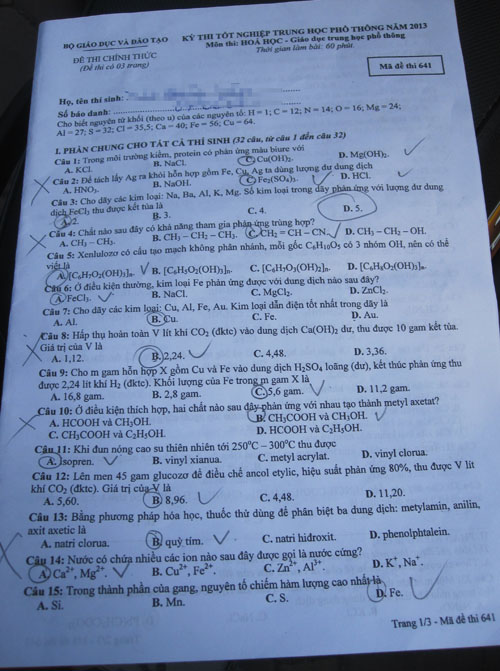 BỘ GIÁO DỤC VÀ ĐÀO TẠO
KỲ THI TỐT NGHIỆP TRUNG HỌC PHỔ THÔNG NĂM 2013
Môn thi: HOÁ HỌC - Giáo dục trung học phổ thông
ĐỀ THI CHÍNH THỨC
Thời gian làm bài: 60 phút.
(Đề thi có 03 trang)
Mã đề thi 641
Họ, tên thí sinh:
Số báo danh:
Cho biết nguyên tử khối (theo u) của các nguyên tố: H = 1; C = 12; N = 14; O = 16; Mg = 24;
Al = 27; S = 32; Cl = 35,5; Ca = 40; Fe = 56; Cu = 64.
I. PHẦN CHUNG CHO TẤT CẢ THÍ SINH (32 câu, từ câu 1 đến câu 32)
Câu 1: Trong môi trường kiềm, protein có phản ứng màu biure với
A. KCl. B. NaCl. C. Cu(OH)₂. D. Mg(OH)₂.
Câu 2: Để tách lấy Ag ra khỏi hỗn hợp gồm Fe, Cu, Ag ta dùng lượng dư dung dịch
A. HNO₃. B. NaOH. C. Fe₂(SO₄)₃. D. HCl.
Câu 3: Cho dãy các kim loại: Na, Ba, Al, K, Mg. Số kim loại trong dãy phản ứng với lượng dư dung
dịch FeCl₃ thu được kết tủa là
A. 2. B. 3. C. 4. D. 5.
Câu 4: Chất nào sau đây có khả năng tham gia phản ứng trùng hợp?
A. CH₃ – CH₃. B. CH₃ – CH₂ – CH₃. C. CH₂ = CH – CN. D. CH₃ – CH₂ – OH.
Câu 5: Xenlulozơ có cấu tạo mạch không phân nhánh, mỗi gốc C₆H₁₀O₅ có 3 nhóm OH, nên có thể
viết là
A. [C₆H₇O₂(OH)₃]ₙ. B. [C₆H₅O₂(OH)₃]ₙ. C. [C₆H₇O₃(OH)₂]ₙ. D. [C₆H₈O₂(OH)₃]ₙ.
Câu 6: Ở điều kiện thường, kim loại Fe phản ứng được với dung dịch nào sau đây?
A. FeCl₃. B. NaCl. C. MgCl₂. D. ZnCl₂.
Câu 7: Cho dãy các kim loại: Cu, Al, Fe, Au. Kim loại dẫn điện tốt nhất trong dãy là
A. Al. B. Cu. C. Fe. D. Au.
Câu 8: Hấp thụ hoàn toàn V lít khí CO₂ (đktc) vào dung dịch Ca(OH)₂ dư, thu được 10 gam kết tủa.
Giá trị của V là
A. 1,12. B. 2,24. C. 4,48. D. 3,36.
Câu 9: Cho m gam hỗn hợp X gồm Cu và Fe vào dung dịch H₂SO₄ loãng (dư), kết thúc phản ứng thu
được 2,24 lít khí H₂ (đktc). Khối lượng của Fe trong m gam X là
A. 16,8 gam. B. 2,8 gam. C. 5,6 gam. D. 11,2 gam.
Câu 10: Ở điều kiện thích hợp, hai chất nào sau đây phản ứng với nhau tạo thành metyl axetat?
A. HCOOH và CH₃OH. B. CH₃COOH và CH₃OH.
C. CH₃COOH và C₂H₅OH. D. HCOOH và C₂H₅OH.
Câu 11: Khi đun nóng cao su thiên nhiên tới 250⁰C – 300⁰C thu được
A. isopren. B. vinyl xianua. C. metyl acrylat. D. vinyl clorua.
Câu 12: Lên men 45 gam glucozơ để điều chế ancol etylic, hiệu suất phản ứng 80%, thu được V lít
khí CO₂ (đktc). Giá trị của V là
A. 5,60. B. 8,96. C. 4,48. D. 11,20.
Câu 13: Bằng phương pháp hóa học, thuốc thử dùng để phân biệt ba dung dịch: metylamin, anilin,
axit axetic là
A. natri clorua. B. quỳ tím. C. natri hiđroxit. D. phenolphtalein.
Câu 14: Nước có chứa nhiều các ion nào sau đây được gọi là nước cứng?
A. Ca²⁺, Mg²⁺. B. Cu²⁺, Fe²⁺. C. Zn²⁺, Al³⁺. D. K⁺, Na⁺.
Câu 15: Trong thành phần của gang, nguyên tố chiếm hàm lượng cao nhất là
A. Si. B. Mn. C. S. D. Fe.
Trang 1/3 - Mã đề thi 641